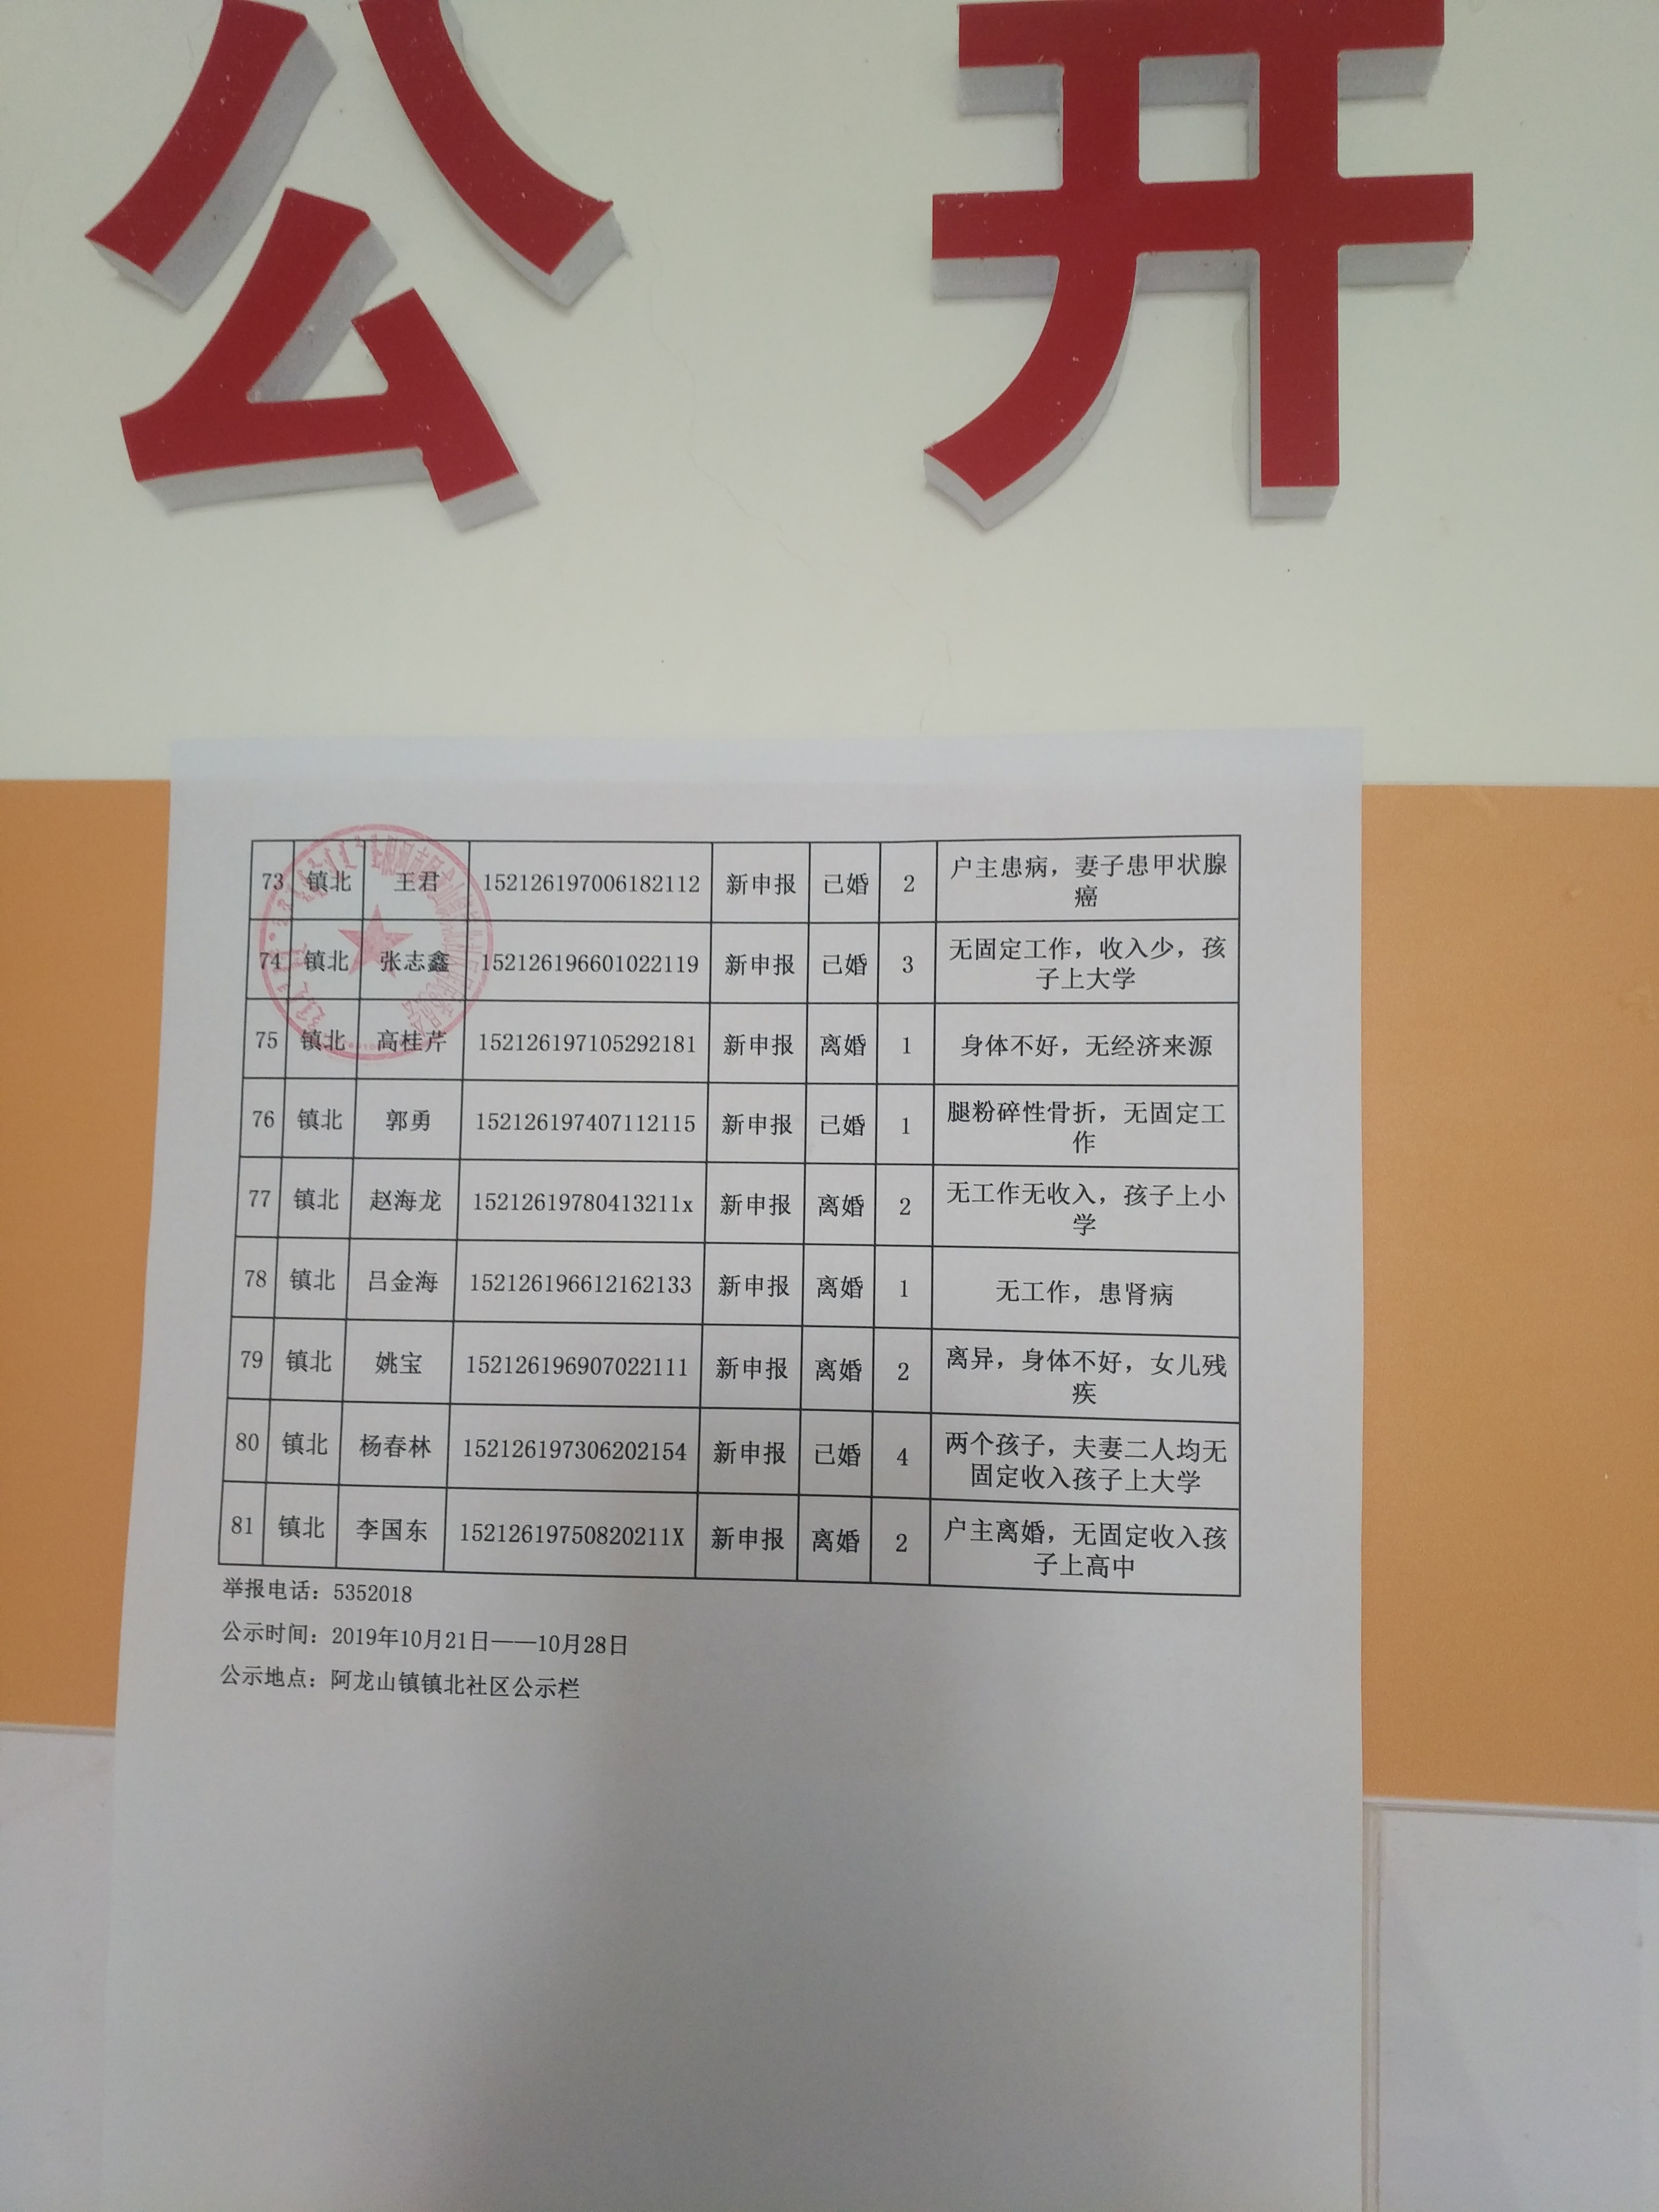 公开
73 镇北 王君 152126197006182112 新申报 已婚 2 户主患病，妻子患甲状腺
癌
74 镇北 张志鑫 152126196601022119 新申报 已婚 3 无固定工作，收入少，孩
子上大学
75 镇北 高桂芹 152126197105292181 新申报 离婚 1 身体不好，无经济来源
76 镇北 郭勇 152126197407112115 新申报 已婚 1 腿粉碎性骨折，无固定工
作
77 镇北 赵海龙 15212619780413211x 新申报 离婚 2 无工作无收入，孩子上小
学
78 镇北 吕金海 152126196612162133 新申报 离婚 1 无工作，患肾病
79 镇北 姚宝 152126196907022111 新申报 离婚 2 离异，身体不好，女儿残
疾
80 镇北 杨春林 152126197306202154 新申报 已婚 4 两个孩子，夫妻二人均无
固定收入孩子上大学
81 镇北 李国东 15212619750820211X 新申报 离婚 2 户主离婚，无固定收入孩
子上高中
举报电话：5352018
公示时间：2019年10月21日——10月28日
公示地点：阿龙山镇镇北社区公示栏